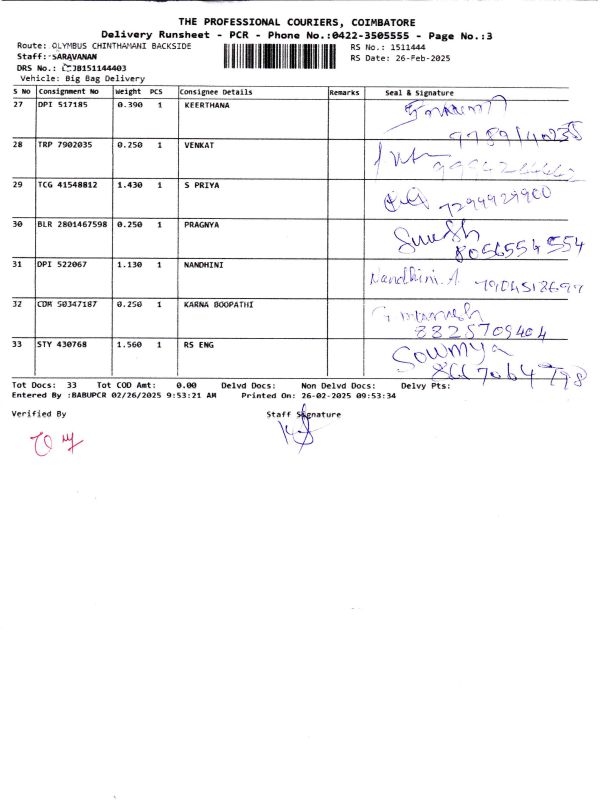 THE PROFESSIONAL COURIERS, COIMBATORE
Delivery Runsheet - PCR - Phone No.:0422-3505555 - Page No.:3
Route: OLYMBUS CHINTHAMANI BACKSIDE RS No.: 1511444
Staff: SARAVANAN RS Date: 26-Feb-2025
DRS No.: JB151144403
Vehicle: Big Bag Delivery
S No Consignment No Weight PCS Consignee Details Remarks Seal & Signature
27 DPI 517185 0.390 1 KEERTHANA
28 TRP 7902035 0.250 1 VENKAT
29 TCG 41548812 1.430 1 S PRIYA
7299929900
30 BLR 2801467598 0.250 1 PRAGNYA Suresh
8056554554
31 DPI 522067 1.130 1 NANDHINI Nandhini.A
32 CDM 50347187 0.250 1 KARNA BOOPATHI
8825709404
33 STY 430768 1.560 1 RS ENG Sowmya
Tot Docs: 33 Tot COD Amt: 0.00 Delvd Docs: Non Delvd Docs: Delvy Pts:
Entered By :BABUPCR 02/26/2025 9:53:21 AM Printed On: 26-02-2025 09:53:34
Verified By Staff Signature